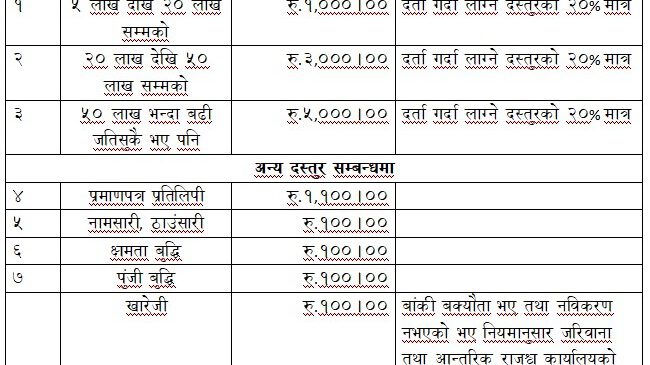 १ ५ लाख देखि २० लाख रु.१,०००।०० दर्ता गर्दा लाग्ने दस्तुरको २०% मात्र
सम्मको
२ २० लाख देखि ५० रु.३,०००।०० दर्ता गर्दा लाग्ने दस्तुरको २०% मात्र
लाख सम्मको
३ ५० लाख भन्दा बढी रु.५,०००।०० दर्ता गर्दा लाग्ने दस्तुरको २०% मात्र
जतिसुकै भए पनि
अन्य दस्तुर सम्बन्धमा
४ प्रमाणपत्र प्रतिलिपी रु.१,१००।००
५ नामसारी, ठाउंसारी रु.१००।००
६ क्षमता बृद्धि रु.१००।००
७ पुंजी बृद्धि रु.१००।००
खारेजी रु.१००।०० बांकी बक्यौता भए तथा नविकरण
नभएको भए नियमानुसार जरिवाना
तथा आन्तरिक राजश्व कार्यालयको